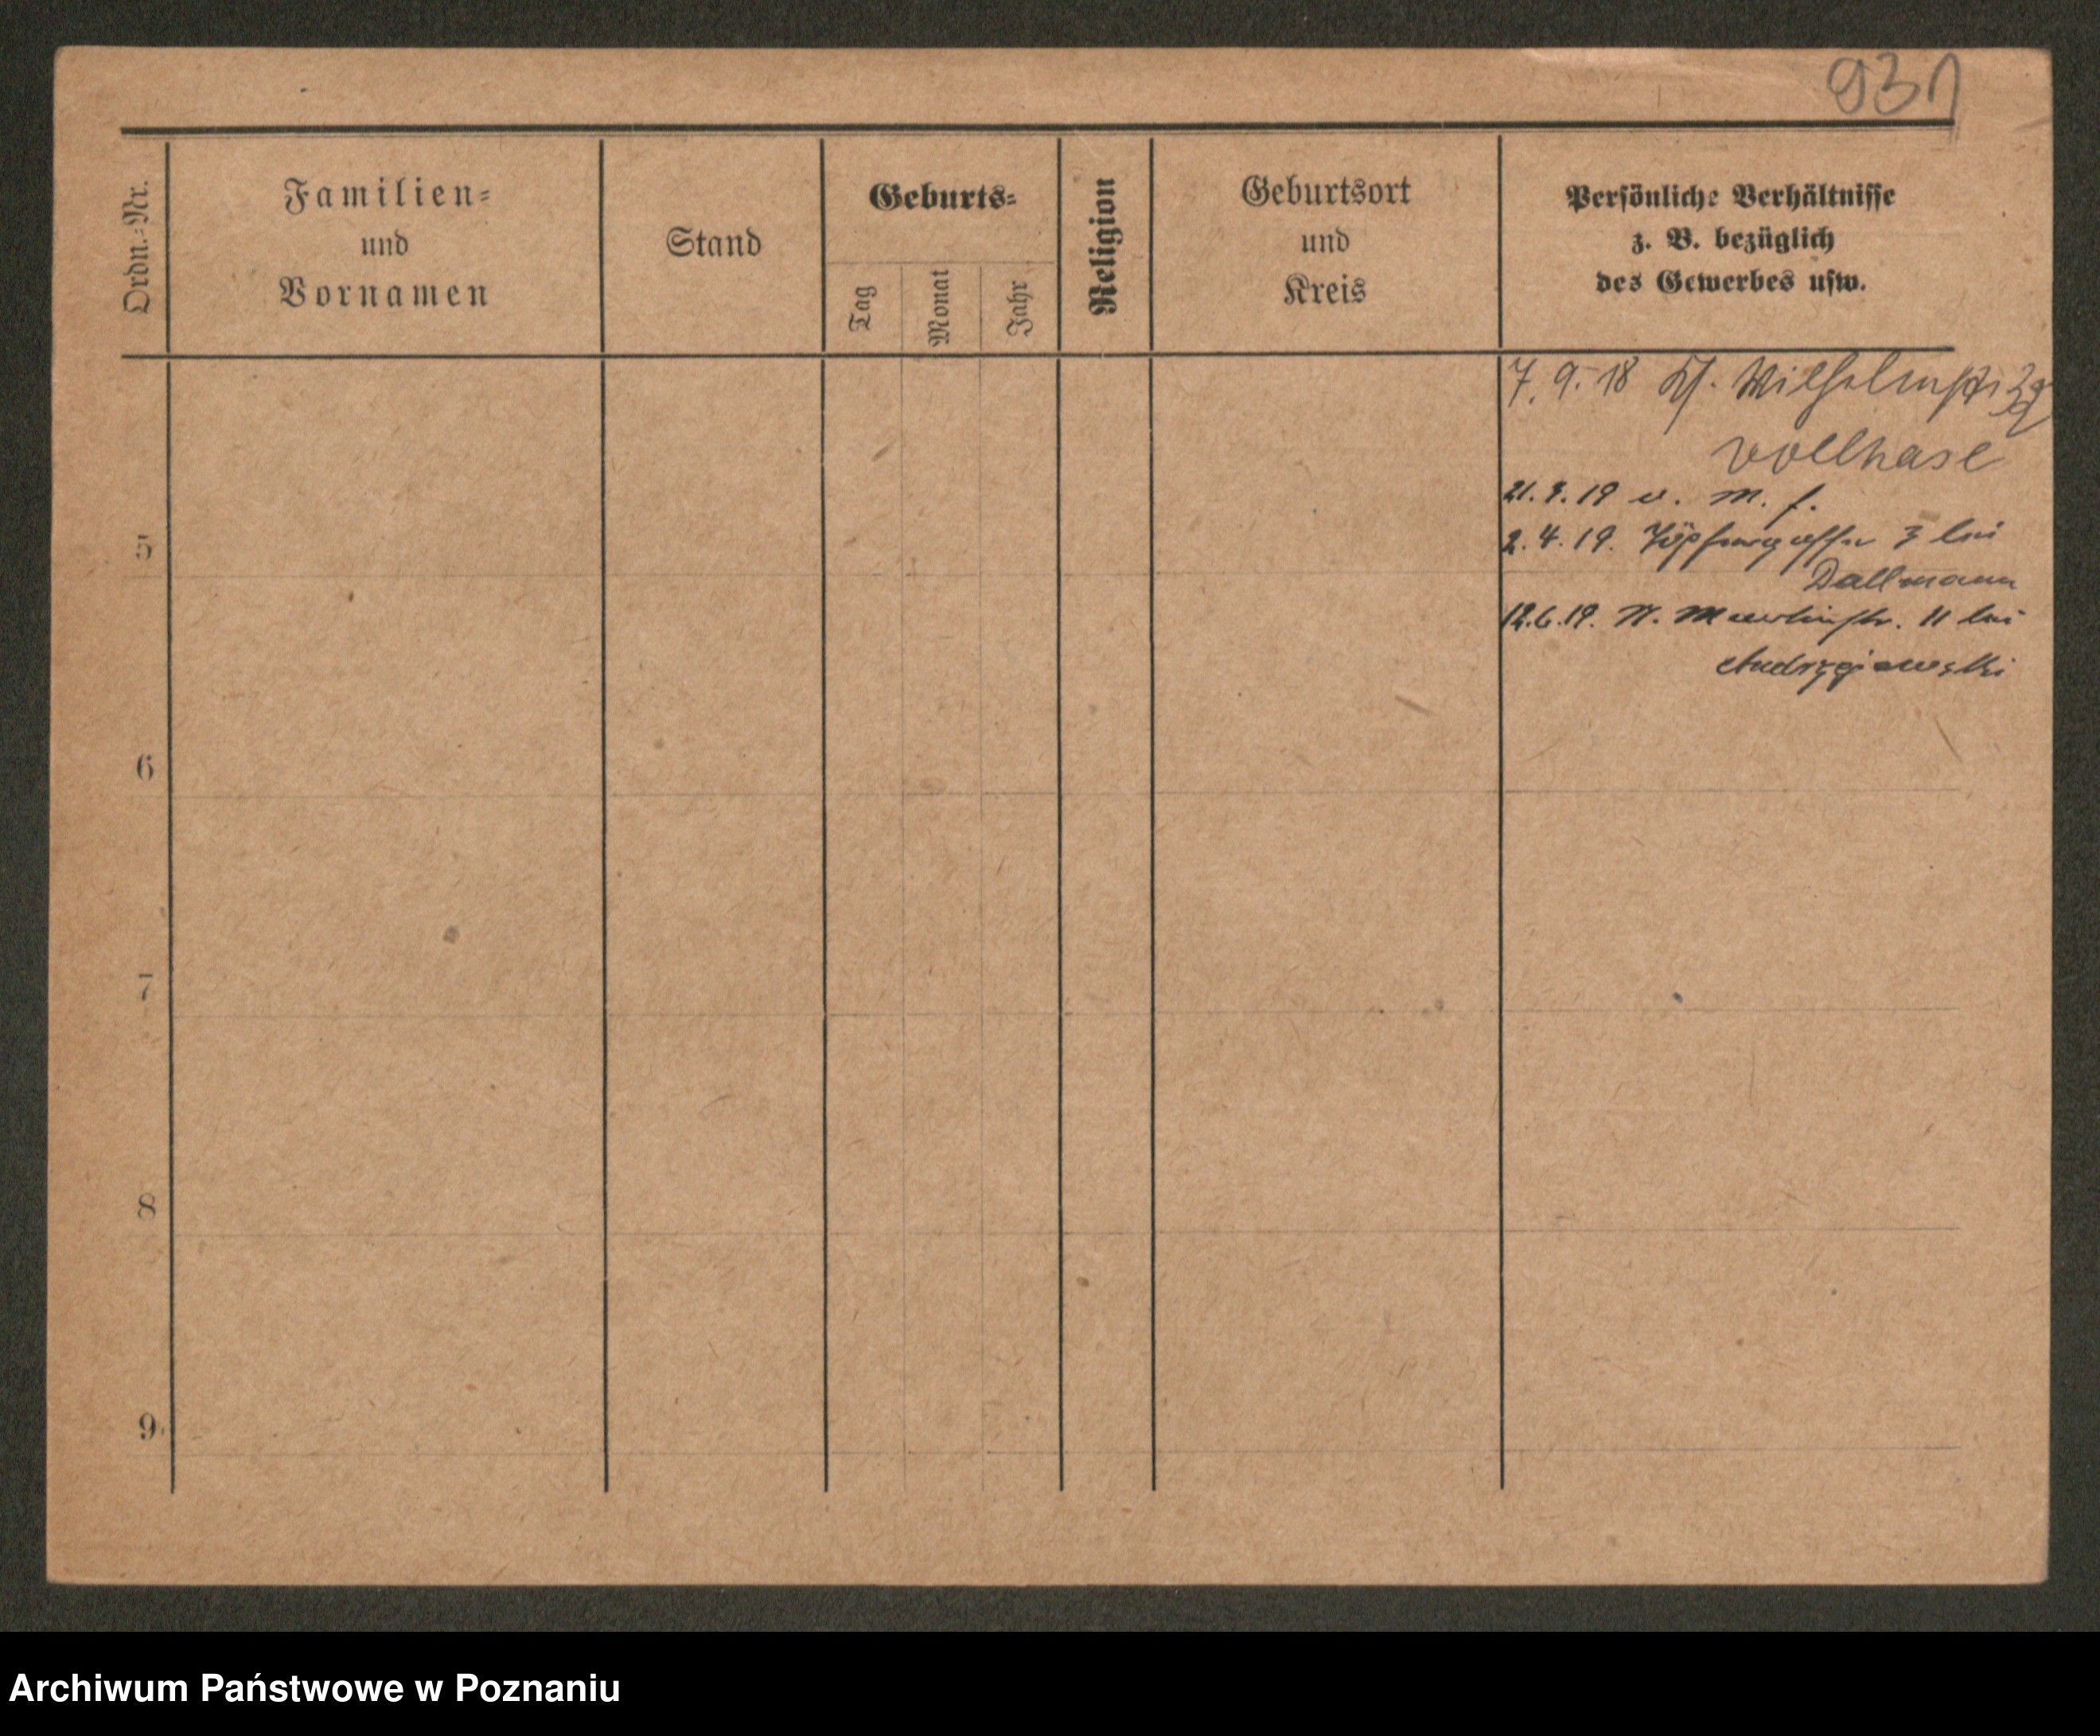 931
Ordn.-Nr.
Familien-
und
Vornamen
Stand
Geburts-
Tag
Monat
Jahr
Religion
Geburtsort
und
Kreis
Persönliche Verhältnisse
z. B. bezüglich
des Gewerbes usw.
7.9.18 Wilhelmstr
Vollhase
21.3.19 v. M. f.
5
2.4.19. Töpfergasse 3 bei
Dallmann
12.6.19. N. Martinstr. 11 bei
Andrzejewski
6
7
8
9
Archiwum Państwowe w Poznaniu